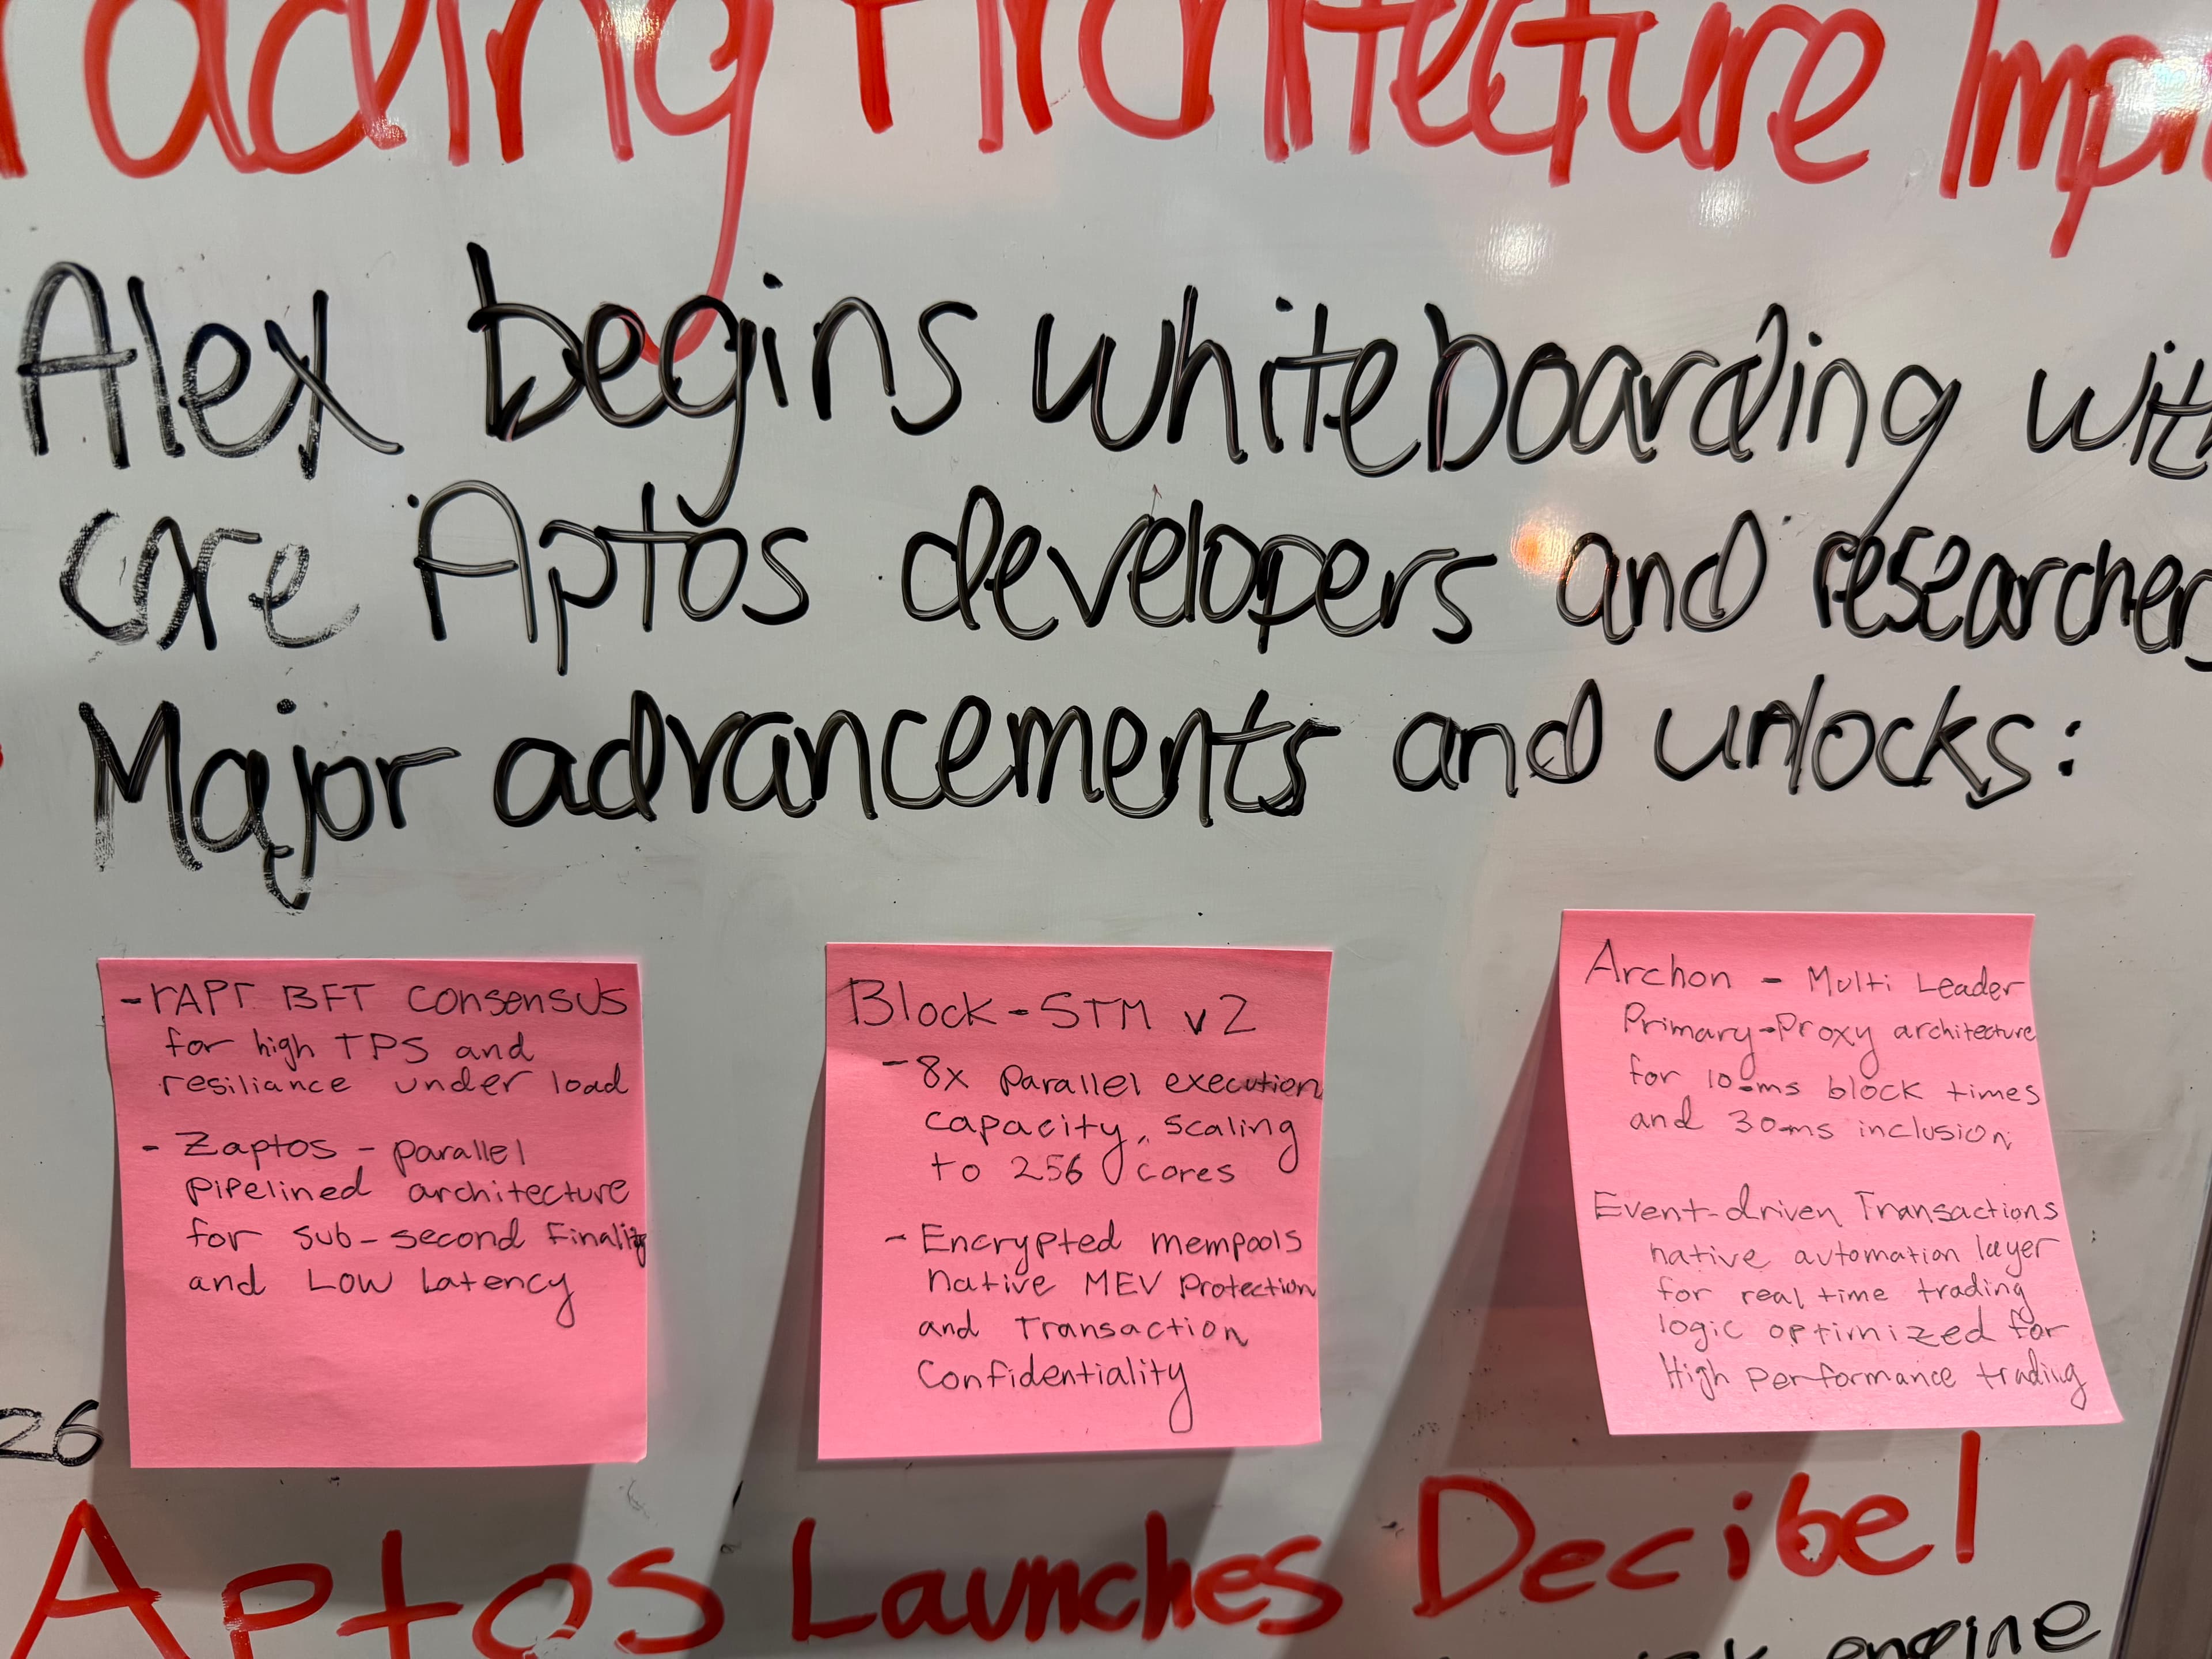 Trading Architecture Impr
Alex begins whiteboarding with
core Aptos developers and researchers
Major advancements and unlocks:
- rAPT BFT Consensus
for high TPS and
resiliance under load
- Zaptos - parallel
pipelined architecture
for sub-second Finality
and Low Latency
Block-STM v2
- 8x parallel execution
capacity, scaling
to 256 cores
- Encrypted mempools
native MEV Protection
and Transaction
Confidentiality
Archon - Multi Leader
Primary-Proxy architecture
for 10-ms block times
and 30-ms inclusion
Event-driven Transactions
native automation layer
for real time trading
logic optimized for
High Performance trading
26
Aptos Launches Decibel
engine